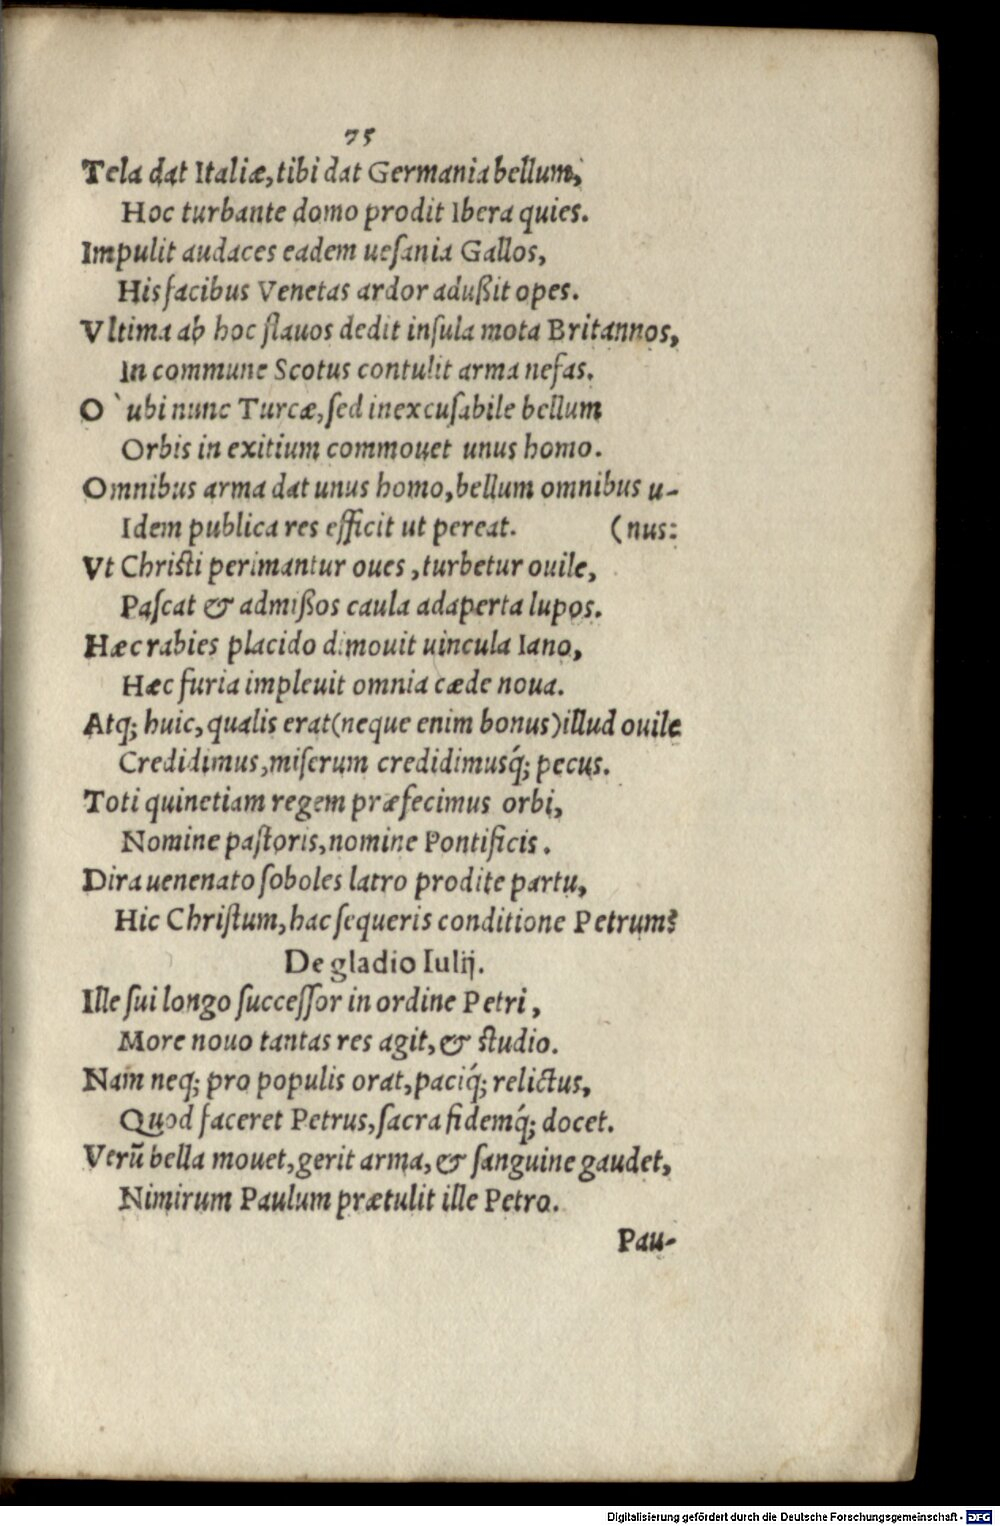 75
Tela dat Italiæ, tibi dat Germania bellum,
Hoc turbante domo prodit Ibera quies.
Impulit audaces eadem uesania Gallos,
His facibus Venetas ardor adußit opes.
Vltima ab hoc flauos dedit insula mota Britannos,
In commune Scotus contulit arma nefas.
O` ubi nunc Turcæ, sed inexcusabile bellum
Orbis in exitium commouet unus homo.
Omnibus arma dat unus homo, bellum omnibus u-
Idem publica res efficit ut pereat. (nus:
Vt Christi perimantur oues, turbetur ouile,
Pascat & admißos caula adaperta lupos.
Hæc rabies placido dimouit uincula Iano,
Hæc furia impleuit omnia cæde noua.
Atq; huic, qualis erat(neque enim bonus)illud ouile
Credidimus, miserum credidimusq́; pecus.
Toti quinetiam regem præfecimus orbi,
Nomine pastoris, nomine Pontificis.
Dira uenenato soboles latro prodite partu,
Hic Christum, hac sequeris conditione Petrum?
De gladio Iulij.
Ille sui longo successor in ordine Petri,
More nouo tantas res agit, & studio.
Nam neq; pro populis orat, paciq́; relictus,
Quod faceret Petrus, sacra fidemq́; docet.
Verũ bella mouet, gerit arma, & sanguine gaudet,
Nimirum Paulum prætulit ille Petro.
Pau-
Digitalisierung gefördert durch die Deutsche Forschungsgemeinschaft - DFG